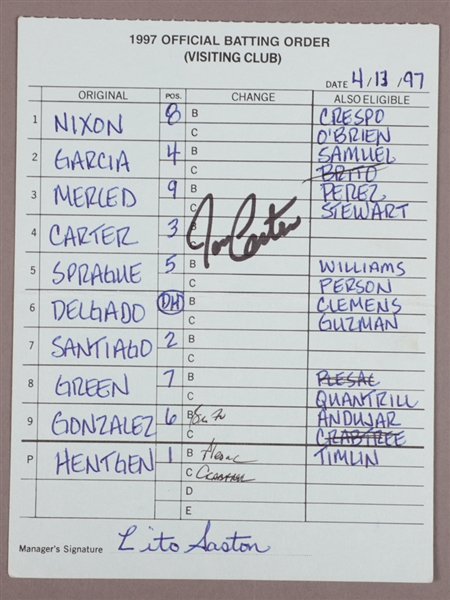 1997 OFFICIAL BATTING ORDER
(VISITING CLUB)
DATE 4/13/97
ORIGINAL POS. CHANGE ALSO ELIGIBLE
1 NIXON 8 B CRESPO
C O'BRIEN
2 GARCIA 4 B SAMUEL
C BRITO
3 MERCED 9 B PEREZ
C STEWART
4 CARTER 3 Joe Carter
5 SPRAGUE 5 B WILLIAMS
C PERSON
6 DELGADO DH B CLEMENS
C GUZMAN
7 SANTIAGO 2 B
C
8 GREEN 7 B PLESAC
C QUANTRILL
9 GONZALEZ 6 B ANDUJAR
C CRABTREE
P HENTGEN 1 B Plesac TIMLIN
C Crabtree
D
E
Manager's Signature Cito Gaston